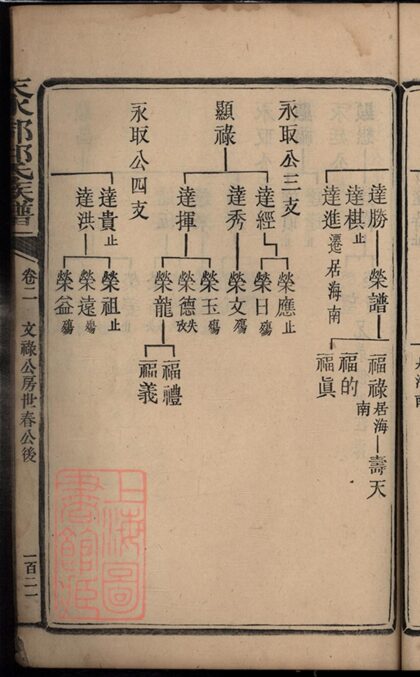 達勝
榮譜
福祿居海南
壽天
福的
福眞
達棋止
達進遷居海南
永取公三支
顯祿
達經
榮應止
榮日殤
達秀
榮文殤
達揮
榮玉殤
榮德失攷
榮龍
福禮
福義
永取公四支
達貴止
榮祖止
達洪
榮遠殤
榮益殤
氏族譜
卷二
文祿公房世春公後
一百二一
上海圖
書館